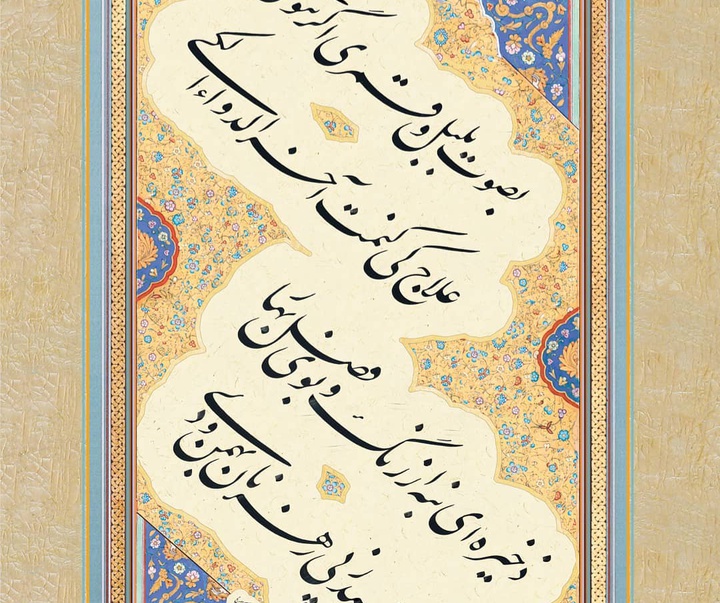 بصوت بلبل و قمری اگر
علاج کی کنمت آخر الدواء الکی
ذخیره‌ای بنه از رنگ و بوی فصل بهار
ز پی رهزنان بهمن و دی